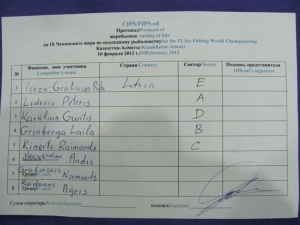 CIPS/FIPS-ed
Протокол/Protocol of
жеребьевки /casting of lots
на IX Чемпионате мира по подледному рыболовству/on the IX Ice Fishing World Championship
Казахстан-Алматы/Kazakhstan-Almaty
10 февраля 2012 г./10/February, 2012
№ Фамилия, имя участника Competitor's name Страна/Country Сектор/Sector Подпись представителя Official's signature
1 Latvia E
2 Lideris Peteris A
3 Karklins Guntis D
4 Grinberga Laila B
5 Kinerts Raimonds C
6 Andis
7 Тренер/Coach Normunds
8 Тренер/Coach Agris
Судья секретарь подпись